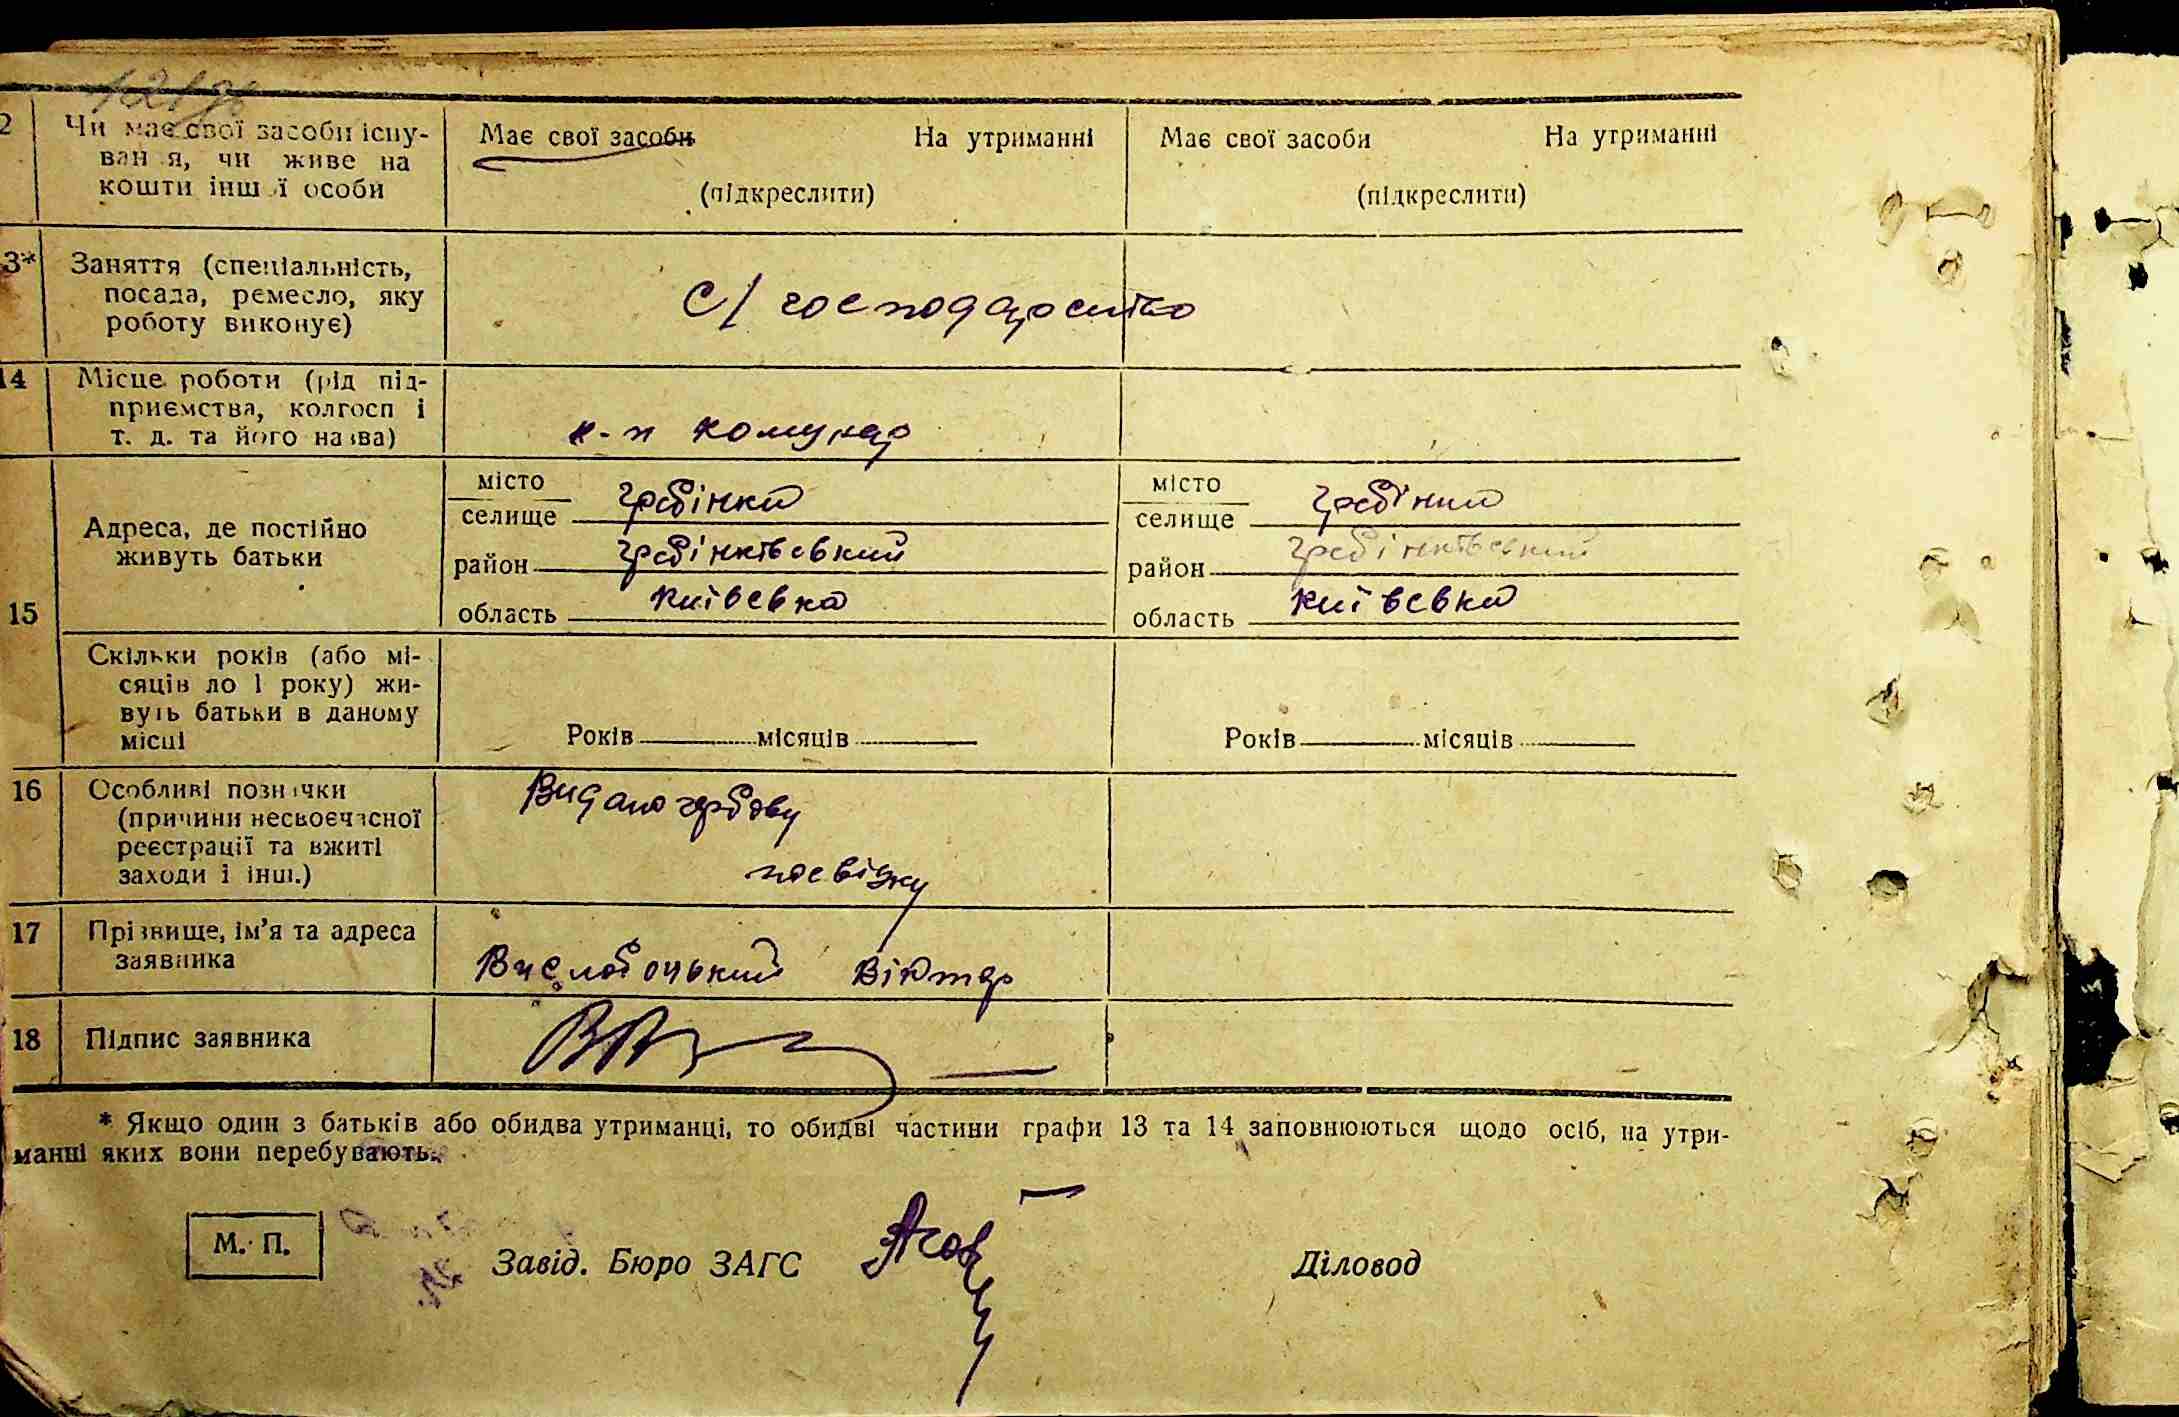 2 Чи має свої засоби існу-
вання, чи живе на
кошти іншої особи
Має свої засоби На утриманні
(підкреслити)
Має свої засоби На утриманні
(підкреслити)
3* Заняття (спеціальність,
посада, ремесло, яку
роботу виконує)
с/господарство
14 Місце роботи (рід під-
приємства, колгосп і
т. д. та його назва)
к-п комунар
15
Адреса, де постійно
живуть батьки
місто
селище Гребінки
район Гребінківський
область Київська
місто
селище Гребінки
район Гребінківський
область Київська
Скільки років (або мі-
сяців до 1 року) жи-
вуть батьки в даному
місці
Років місяців
Років місяців
16 Особливі позначки
(причини несвоєчасної
реєстрації та вжиті
заходи і інш.)
Видано гербову
посвідку
17 Прізвище, ім'я та адреса
заявника
Вислобоцький Віктор
18 Підпис заявника
* Якщо один з батьків або обидва утриманці, то обидві частини графи 13 та 14 заповнюються щодо осіб, на утри-
манні яких вони перебувають.
М. П.
Завід. Бюро ЗАГС
Діловод